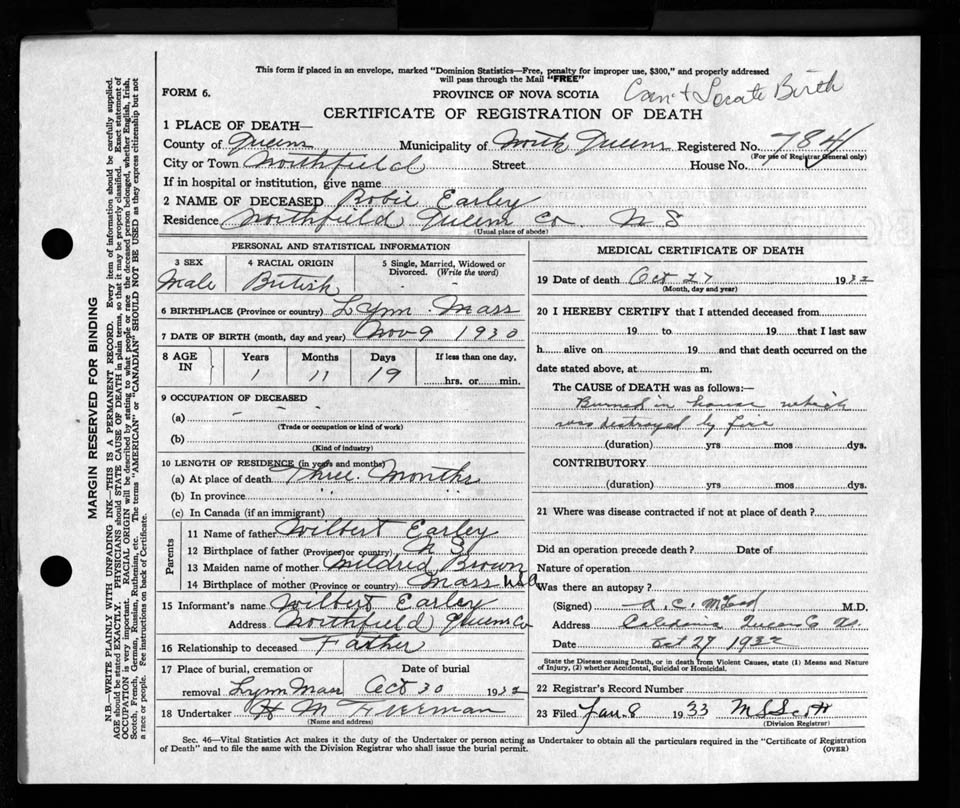 This form if placed in an envelope, marked "Dominion Statistics—Free, penalty for improper use, $300," and properly addressed
will pass through the Mail "FREE"
FORM 6.
PROVINCE OF NOVA SCOTIA
Can't Locate Birth
CERTIFICATE OF REGISTRATION OF DEATH
1 PLACE OF DEATH—
County of Queens Municipality of North Queens Registered No. 784
(For use of Registrar General only)
City or Town Northfield Street House No.
If in hospital or institution, give name
2 NAME OF DECEASED Bobie Earley
Residence Northfield Queens Co. N S
(Usual place of abode)
PERSONAL AND STATISTICAL INFORMATION
3 SEX 4 RACIAL ORIGIN 5 Single, Married, Widowed or
Divorced. (Write the word)
Male British
6 BIRTHPLACE (Province or country) Lynn Mass
7 DATE OF BIRTH (month, day and year) Nov 9 1930
8 AGE IN Years Months Days If less than one day,
1 11 19 hrs. or min.
9 OCCUPATION OF DECEASED
(a) - - -
(Trade or occupation or kind of work)
(b)
(Kind of industry)
10 LENGTH OF RESIDENCE (in years and months)
(a) At place of death Three Months
(b) In province " "
(c) In Canada (if an immigrant)
Parents
11 Name of father Wilbert Earley
12 Birthplace of father (Province or country) N S
13 Maiden name of mother Mildred Brown
14 Birthplace of mother (Province or country) Mass USA
15 Informant's name Wilbert Earley
Address Northfield Queens Co
16 Relationship to deceased Father
17 Place of burial, cremation or Date of burial
removal Lynn Mass Oct 30 1932
18 Undertaker H M Freeman
(Name and address)
MEDICAL CERTIFICATE OF DEATH
19 Date of death Oct 27 1932
(Month, day and year)
20 I HEREBY CERTIFY that I attended deceased from
19 to 19 that I last saw
h alive on 19 and that death occurred on the
date stated above, at m.
The CAUSE of DEATH was as follows:—
Burned in house which
was destroyed by fire
(duration) yrs mos dys.
CONTRIBUTORY
(duration) yrs mos dys.
21 Where was disease contracted if not at place of death?
Did an operation precede death? Date of
Nature of operation
Was there an autopsy?
(Signed) A. C. McLeod M.D.
Address Caledonia Queens Co N.S.
Date Oct 29 1932
State the Disease causing Death, or in death from Violent Causes, state (1) Means and Nature
of Injury, (2) whether Accidental, Suicidal or Homicidal.
22 Registrar's Record Number
23 Filed Jan. 8 1933 M S Scott
(Division Registrar)
Sec. 46—Vital Statistics Act makes it the duty of the Undertaker or person acting as Undertaker to obtain all the particulars required in the "Certificate of Registration
of Death" and to file the same with the Division Registrar who shall issue the burial permit.
(OVER)
MARGIN RESERVED FOR BINDING
N.B.—WRITE PLAINLY WITH UNFADING INK—THIS IS A PERMANENT RECORD. Every item of information should be carefully supplied.
AGE should be stated EXACTLY. PHYSICIANS should STATE CAUSE OF DEATH in plain terms, so that it may be properly classified. Exact statement of
OCCUPATION is very important. RACIAL ORIGIN will be described by stating to what people or race the deceased person belonged, whether English, Irish,
Scotch, French, German, Russian, Ruthenian, etc. The terms "AMERICAN" or "CANADIAN" SHOULD NOT BE USED as they express citizenship but not
a race or people. Fee instructions on back of Certificate.